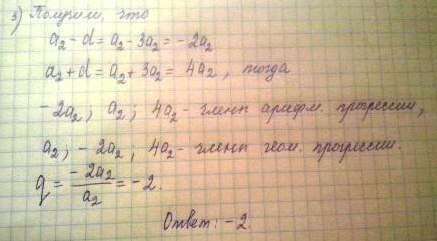 3) Получим, что
a₂ - d = a₂ - 3a₂ = -2a₂
a₂ + d = a₂ + 3a₂ = 4a₂, тогда
-2a₂; a₂; 4a₂ - члены арифм. прогрессии,
a₂; -2a₂; 4a₂ - члены геом. прогрессии.
q = -2a₂/a₂ = -2.
Ответ: -2.